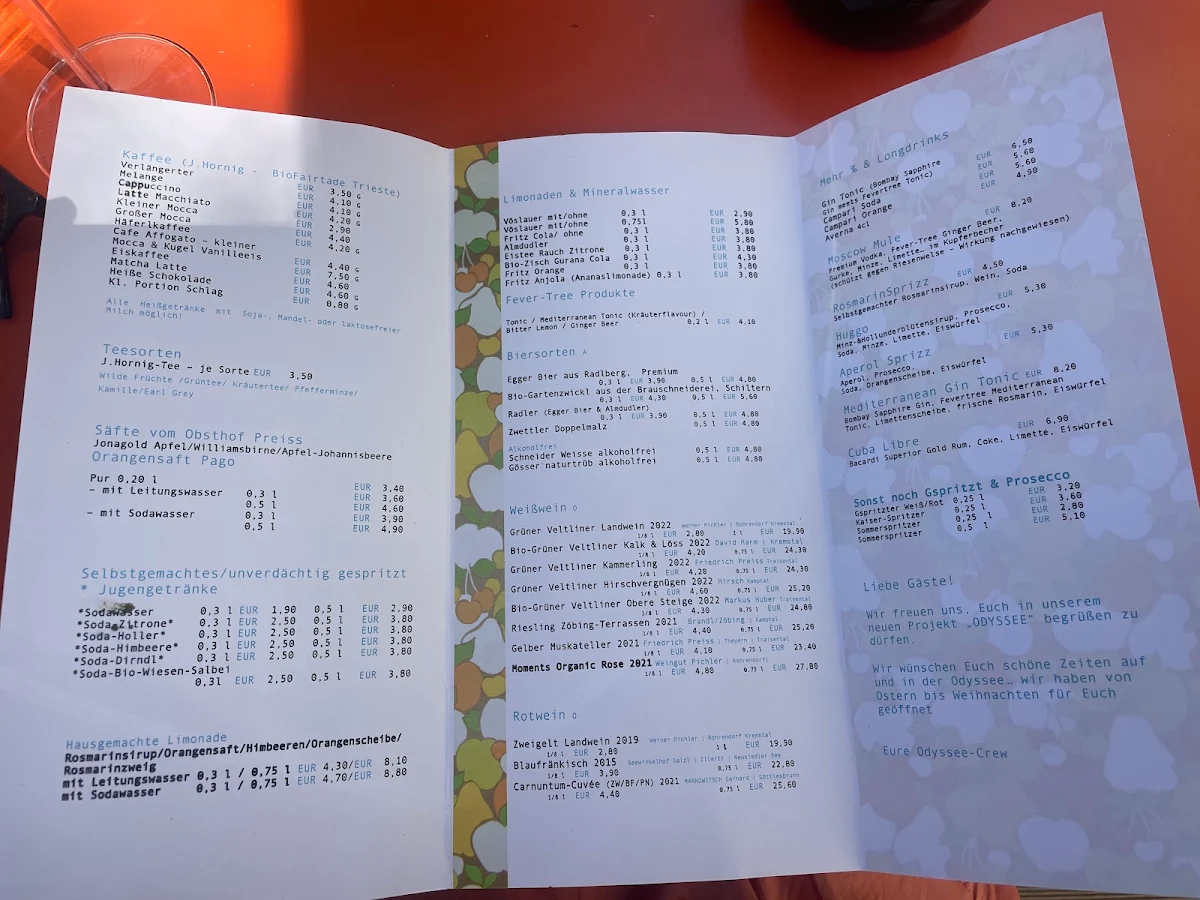 Kaffee (J.Hornig - BioFairtade Trieste)
Verlängerter EUR 3.50 G
Melange EUR 4.10 G
Cappuccino EUR 4.10 G
Latte Macchiato EUR 4.20 G
Kleiner Mocca EUR 2.90
Großer Mocca EUR 4,40
Häferlkaffee EUR 4.20 G
Cafe Affogato - kleiner
Mocca & Kugel Vanilleeis EUR 4,40 G
Eiskaffee EUR 7,50 G
Matcha Latte EUR 4,60
Heiße Schokolade EUR 4,60 G
Kl. Portion Schlag EUR 0,80 G
Alle Heißgetränke mit Soja-, Mandel- oder laktosefreier
Milch möglich!
Teesorten
J.Hornig-Tee - je Sorte EUR 3,50
Wilde Früchte /Grüntee/ Kräutertee/ Pfefferminze/
Kamille/Earl Grey
Säfte vom Obsthof Preiss
Jonagold Apfel/Williamsbirne/Apfel-Johannisbeere
Orangensaft Pago
Pur 0,20 l EUR 3,40
- mit Leitungswasser 0,3 l EUR 3,60
0,5 l EUR 4,60
- mit Sodawasser 0,3 l EUR 3,90
0,5 l EUR 4,90
Selbstgemachtes/unverdächtig gespritzt
* Jugengetränke
*Sodawasser 0,3 l EUR 1,90 0,5 l EUR 2,90
*Soda-Zitrone* 0,3 l EUR 2,50 0,5 l EUR 3,80
*Soda-Holler* 0,3 l EUR 2,50 0,5 l EUR 3,80
*Soda-Himbeere* 0,3 l EUR 2,50 0,5 l EUR 3,80
*Soda-Dirndl* 0,3 l EUR 2,50 0,5 l EUR 3,80
*Soda-Bio-Wiesen-Salbei
0,3l EUR 2,50 0,5 l EUR 3,80
Hausgemachte Limonade
Rosmarinsirup/Orangensaft/Himbeeren/Orangenscheibe/
Rosmarinzweig
mit Leitungswasser 0,3 l / 0,75 l EUR 4,30/EUR 8,10
mit Sodawasser 0,3 l / 0,75 l EUR 4,70/EUR 8,80
Limonaden & Mineralwasser
Vöslauer mit/ohne 0,3 l EUR 2,90
Vöslauer mit/ohne 0,75l EUR 5,80
Fritz Cola/ ohne 0,3 l EUR 3,80
Almdudler 0,3 l EUR 3,80
Eistee Rauch Zitrone 0,3 l EUR 3,80
Bio-Zisch Gurana Cola 0,3 l EUR 4,30
Fritz Orange 0,3 l EUR 3,80
Fritz Anjola (Ananaslimonade) 0,3 l EUR 3,80
Fever-Tree Produkte
Tonic / Mediterranean Tonic (Kräuterflavour) /
Bitter Lemon / Ginger Beer 0,2 l EUR 4,10
Biersorten A
Egger Bier aus Radlberg, Premium
0,3 l EUR 3,90 0,5 l EUR 4,80
Bio-Gartenzwickl aus der Brauschneiderei, Schiltern
0,3 l EUR 4,30 0,5 l EUR 5,60
Radler (Egger Bier & Almdudler)
0,3 l EUR 3,90 0,5 l EUR 4,80
Zwettler Doppelmalz 0,5 l EUR 4,80
Alkoholfrei
Schneider Weisse alkoholfrei 0,5 l EUR 4,80
Gösser naturtrüb alkoholfrei 0,5 l EUR 4,80
Weißwein O
Grüner Veltliner Landwein 2022 Werner Pichler | Rohrendorf Kremstal
1/8 l EUR 2,80 1 l EUR 19,90
Bio-Grüner Veltliner Kalk & Löss 2022 David Harm | Kremstal
1/8 l EUR 4,20 0,75 l EUR 24,30
Grüner Veltliner Kammerling 2022 Friedrich Preiss Traisental
1/8 l EUR 4,20 0,75 l EUR 24,30
Grüner Veltliner Hirschvergnügen 2022 Hirsch Kamptal
1/8 l EUR 4,60 0,75 l EUR 25,20
Bio-Grüner Veltliner Obere Steige 2022 Markus Huber Traisental
1/8 l EUR 4,30 0,75 l EUR 24,80
Riesling Zöbing-Terrassen 2021 Brandl/Zöbing | Kamptal
1/8 l EUR 4,40 0,75 l EUR 25,20
Gelber Muskateller 2021 Friedrich Preiss | Theyern | Traisental
1/8 l EUR 4,10 0,75 l EUR 23,40
Moments Organic Rose 2021 Weingut Pichler | Rohrendorf
1/8 l EUR 4,80 0,75 l EUR 27,80
Rotwein O
Zweigelt Landwein 2019 Werner Pichler | Rohrendorf Kremstal
1/8 l EUR 2,80 1 l EUR 19,90
Blaufränkisch 2015 Seewinkelhof Salzl | Illmitz | Neusiedler See
1/8 l EUR 3,90 0,75 l EUR 22,80
Carnuntum-Cuvée (ZW/BF/PN) 2021 MARKOWITSCH Gerhard | Göttlesbrunn
1/8 l EUR 4,40 0,75 l EUR 25,60
Mehr % & Longdrinks
Gin Tonic (Bombay Sapphire EUR 6,50
Gin meets Fevertree Tonic) EUR 5,60
Campari Soda EUR 5,60
Campari Orange EUR 4,90
Averna 4cl
Moscow Mule EUR 8,20
Premium Vodka, Fever-Tree Ginger Beer,
Gurke, Minze, Limette, im Kupferbecher
(schützt gegen Riesenwelse - Wirkung nachgewiesen)
RosmarinSprizz EUR 4,50
Selbstgemachter Rosmarinsirup, Wein, Soda
Huggo EUR 5,30
Minz-&Hollunderblütensirup, Prosecco,
Soda, Minze, Limette, Eiswürfel
Aperol Sprizz EUR 5,30
Aperol, Prosecco,
Soda, Orangenscheibe, Eiswürfel
Mediterranean Gin Tonic EUR 8,20
Bombay Sapphire Gin, Fevertree Mediterranean
Tonic, Limettenscheibe, frische Rosmarin, Eiswürfel
Cuba Libre EUR 6,90
Bacardi Superior Gold Rum, Coke, Limette, Eiswürfel
Sonst noch Gspritzt & Prosecco
Gspritzter Weiß/Rot 0,25 l EUR 3,20
Kaiser-Spritzer 0,25 l EUR 3,60
Sommerspritzer 0,25 l EUR 2,80
Sommerspritzer 0,5 l EUR 5,10
Liebe Gäste!
Wir freuen uns, Euch in unserem
neuen Projekt „ODYSSEE“ begrüßen zu
dürfen.
Wir wünschen Euch schöne Zeiten auf
und in der Odyssee… wir haben von
Ostern bis Weihnachten für Euch
geöffnet
Eure Odyssee-Crew